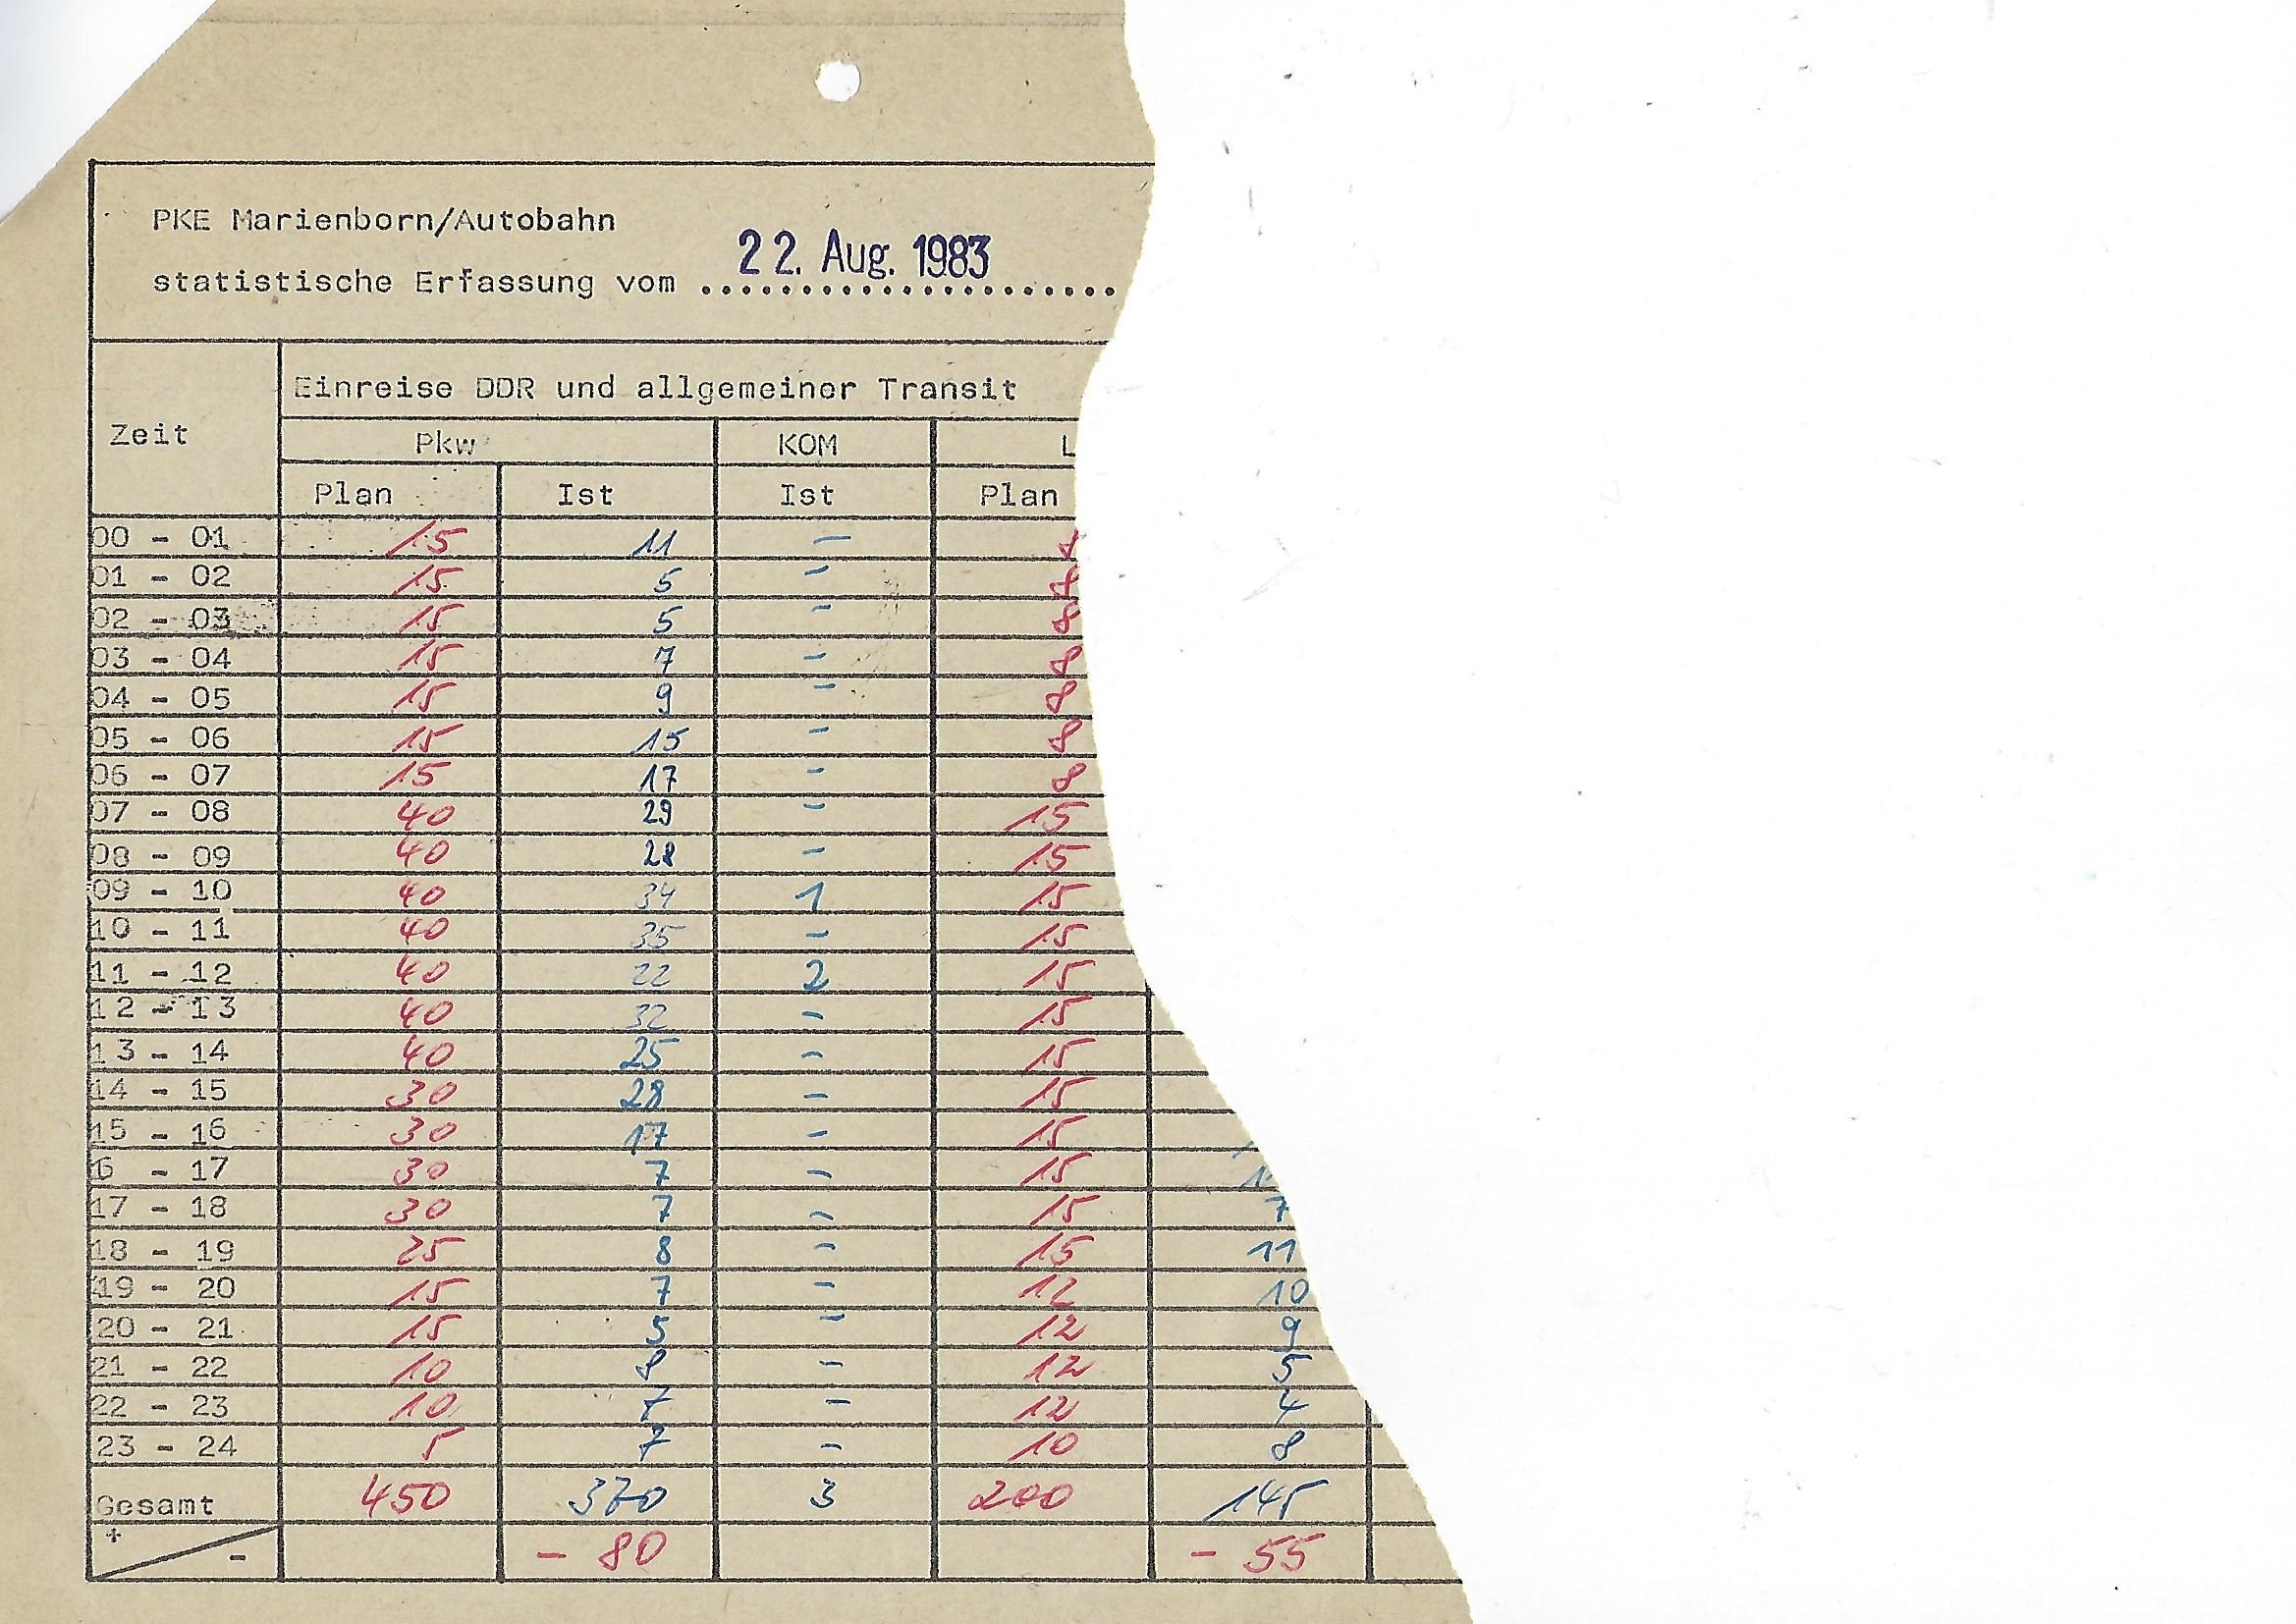 PKE Marienborn/Autobahn
22. Aug. 1983
statistische Erfassung vom .....................
Zeit
Einreise DDR und allgemeiner Transit
Pkw KOM L
Plan Ist Ist Plan
00 - 01 15 11 –
01 - 02 15 5 – 8
02 - 03 15 5 – 8
03 - 04 15 7 – 8
04 - 05 15 9 – 8
05 - 06 15 15 – 8
06 - 07 15 17 – 8
07 - 08 40 29 – 15
08 - 09 40 28 – 15
09 - 10 40 34 1 15
10 - 11 40 35 – 15
11 - 12 40 22 2 15
12 - 13 40 32 – 15
13 - 14 40 25 – 15
14 - 15 30 28 – 15
15 - 16 30 17 – 15
6 - 17 30 7 – 15
17 - 18 30 7 – 15 7
18 - 19 25 8 – 15 11
19 - 20 15 7 – 12 10
20 - 21 15 5 – 12 9
21 - 22 10 8 – 12 5
22 - 23 10 7 – 12 4
23 - 24 5 7 – 10 8
Gesamt 450 370 3 200 145
+ - - 80 - 55